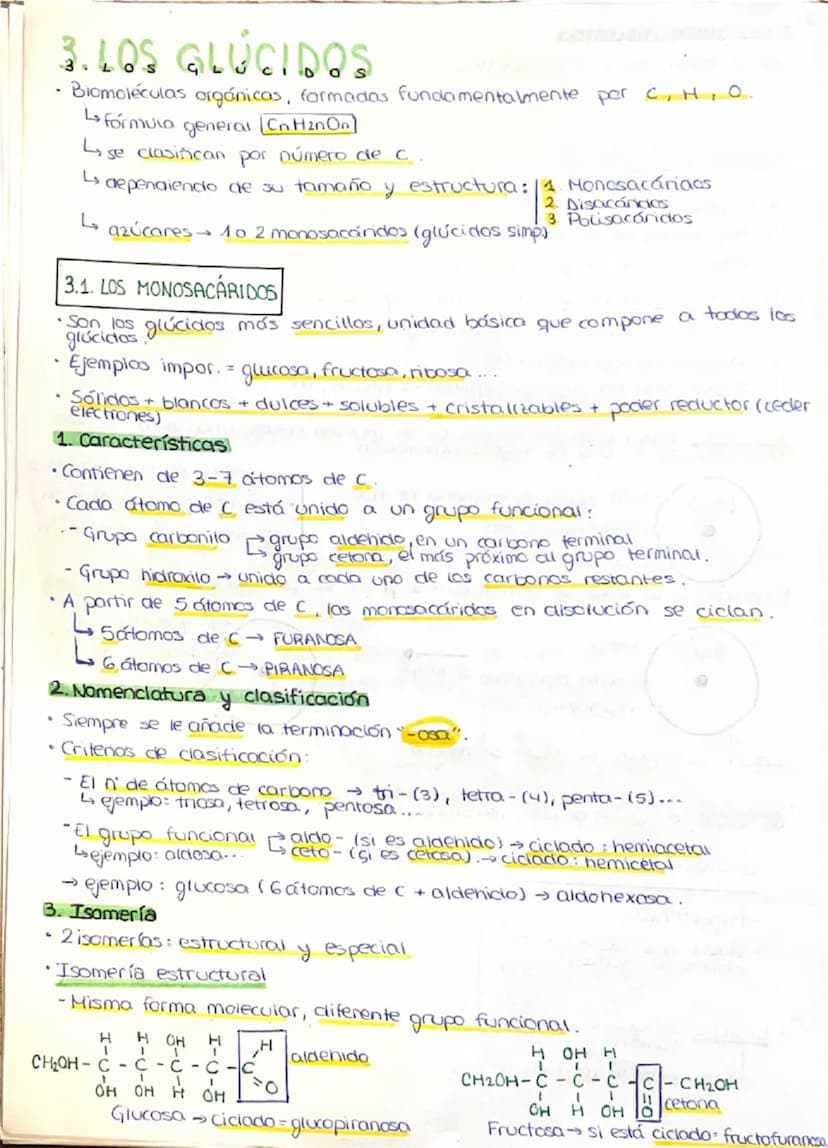 3. LOS GLÚCIDOS
3. LOS GLÚCIDOS
· Biomoléculas orgánicas, formadas fundamentalmente por C, H, O.
↳ fórmula general CnH2nOn
↳ se clasifican por número de C.
↳ dependiendo de su tamaño y estructura: 1. Monosacáridos
2. Disacáridos
3 Polisacáridos
↳ azúcares → 1 o 2 monosacáridos (glúcidos simp)
3.1. LOS MONOSACÁRIDOS
· Son los glúcidos más sencillos, unidad básica que compone a todos los
glúcidos.
· Ejemplos impor. = glucosa, fructosa, ribosa...
· Sólidos + blancos + dulces + solubles + cristalizables + poder reductor (ceder
electrones)
1. Características
· Contienen de 3-7 átomos de C.
· Cada átomo de C está unido a un grupo funcional:
- Grupo carbonilo → grupo aldehido, en un carbono terminal
↳ grupo cetona, el más próximo al grupo terminal.
- Grupo hidroxilo → unido a cada uno de los carbonos restantes.
· A partir de 5 átomos de C, los monosacáridos en disolución se ciclan.
↳ 5 átomos de C → FURANOSA
↳ 6 átomos de C → PIRANOSA
2. Nomenclatura y clasificación
· Siempre se le añade la terminación "-osa".
· Criterios de clasificación:
- El nº de átomos de carbono → tri-(3), tetra-(4), penta-(5)...
↳ ejemplo: triosa, tetrosa, pentosa...
- El grupo funcional → aldo- (si es aldehido) → ciclado: hemiacetal
↳ ejemplo: aldosa... ↳ ceto- (si es cetosa). → ciclado: hemicetal
→ ejemplo: glucosa (6 átomos de C + aldehido) → aldohexosa.
3. Isomería
· 2 isomerías: estructural y especial
· Isomería estructural
- Misma forma molecular, diferente grupo funcional.
H H OH H H
CH2OH - C - C - C - C - C aldehido
OH OH H OH O
Glucosa → Ciclado = glucopiranosa
H OH H
CH2OH - C - C - C - C - CH2OH
OH H OH O cetona
Fructosa → si está ciclado = fructofuranosa